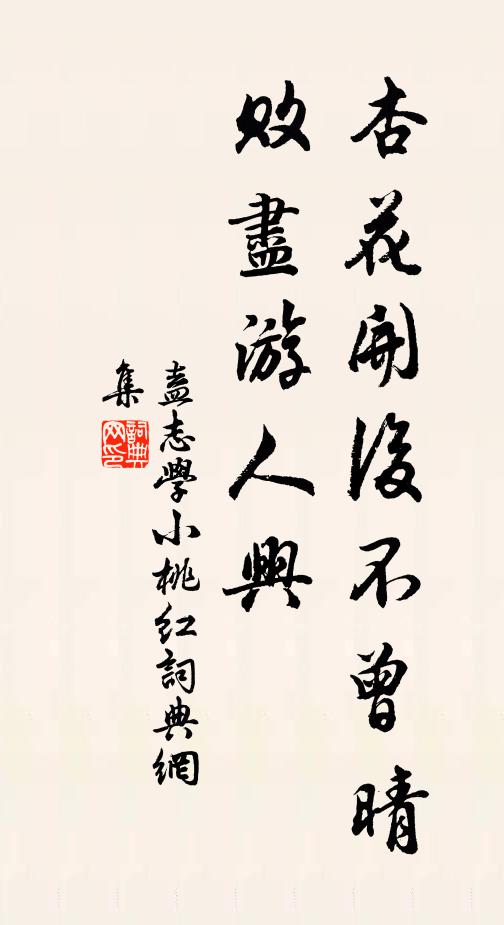 杏花開後不曾晴
敗盡游人興
盍志學小桃紅詞典網
集
詞典
网印